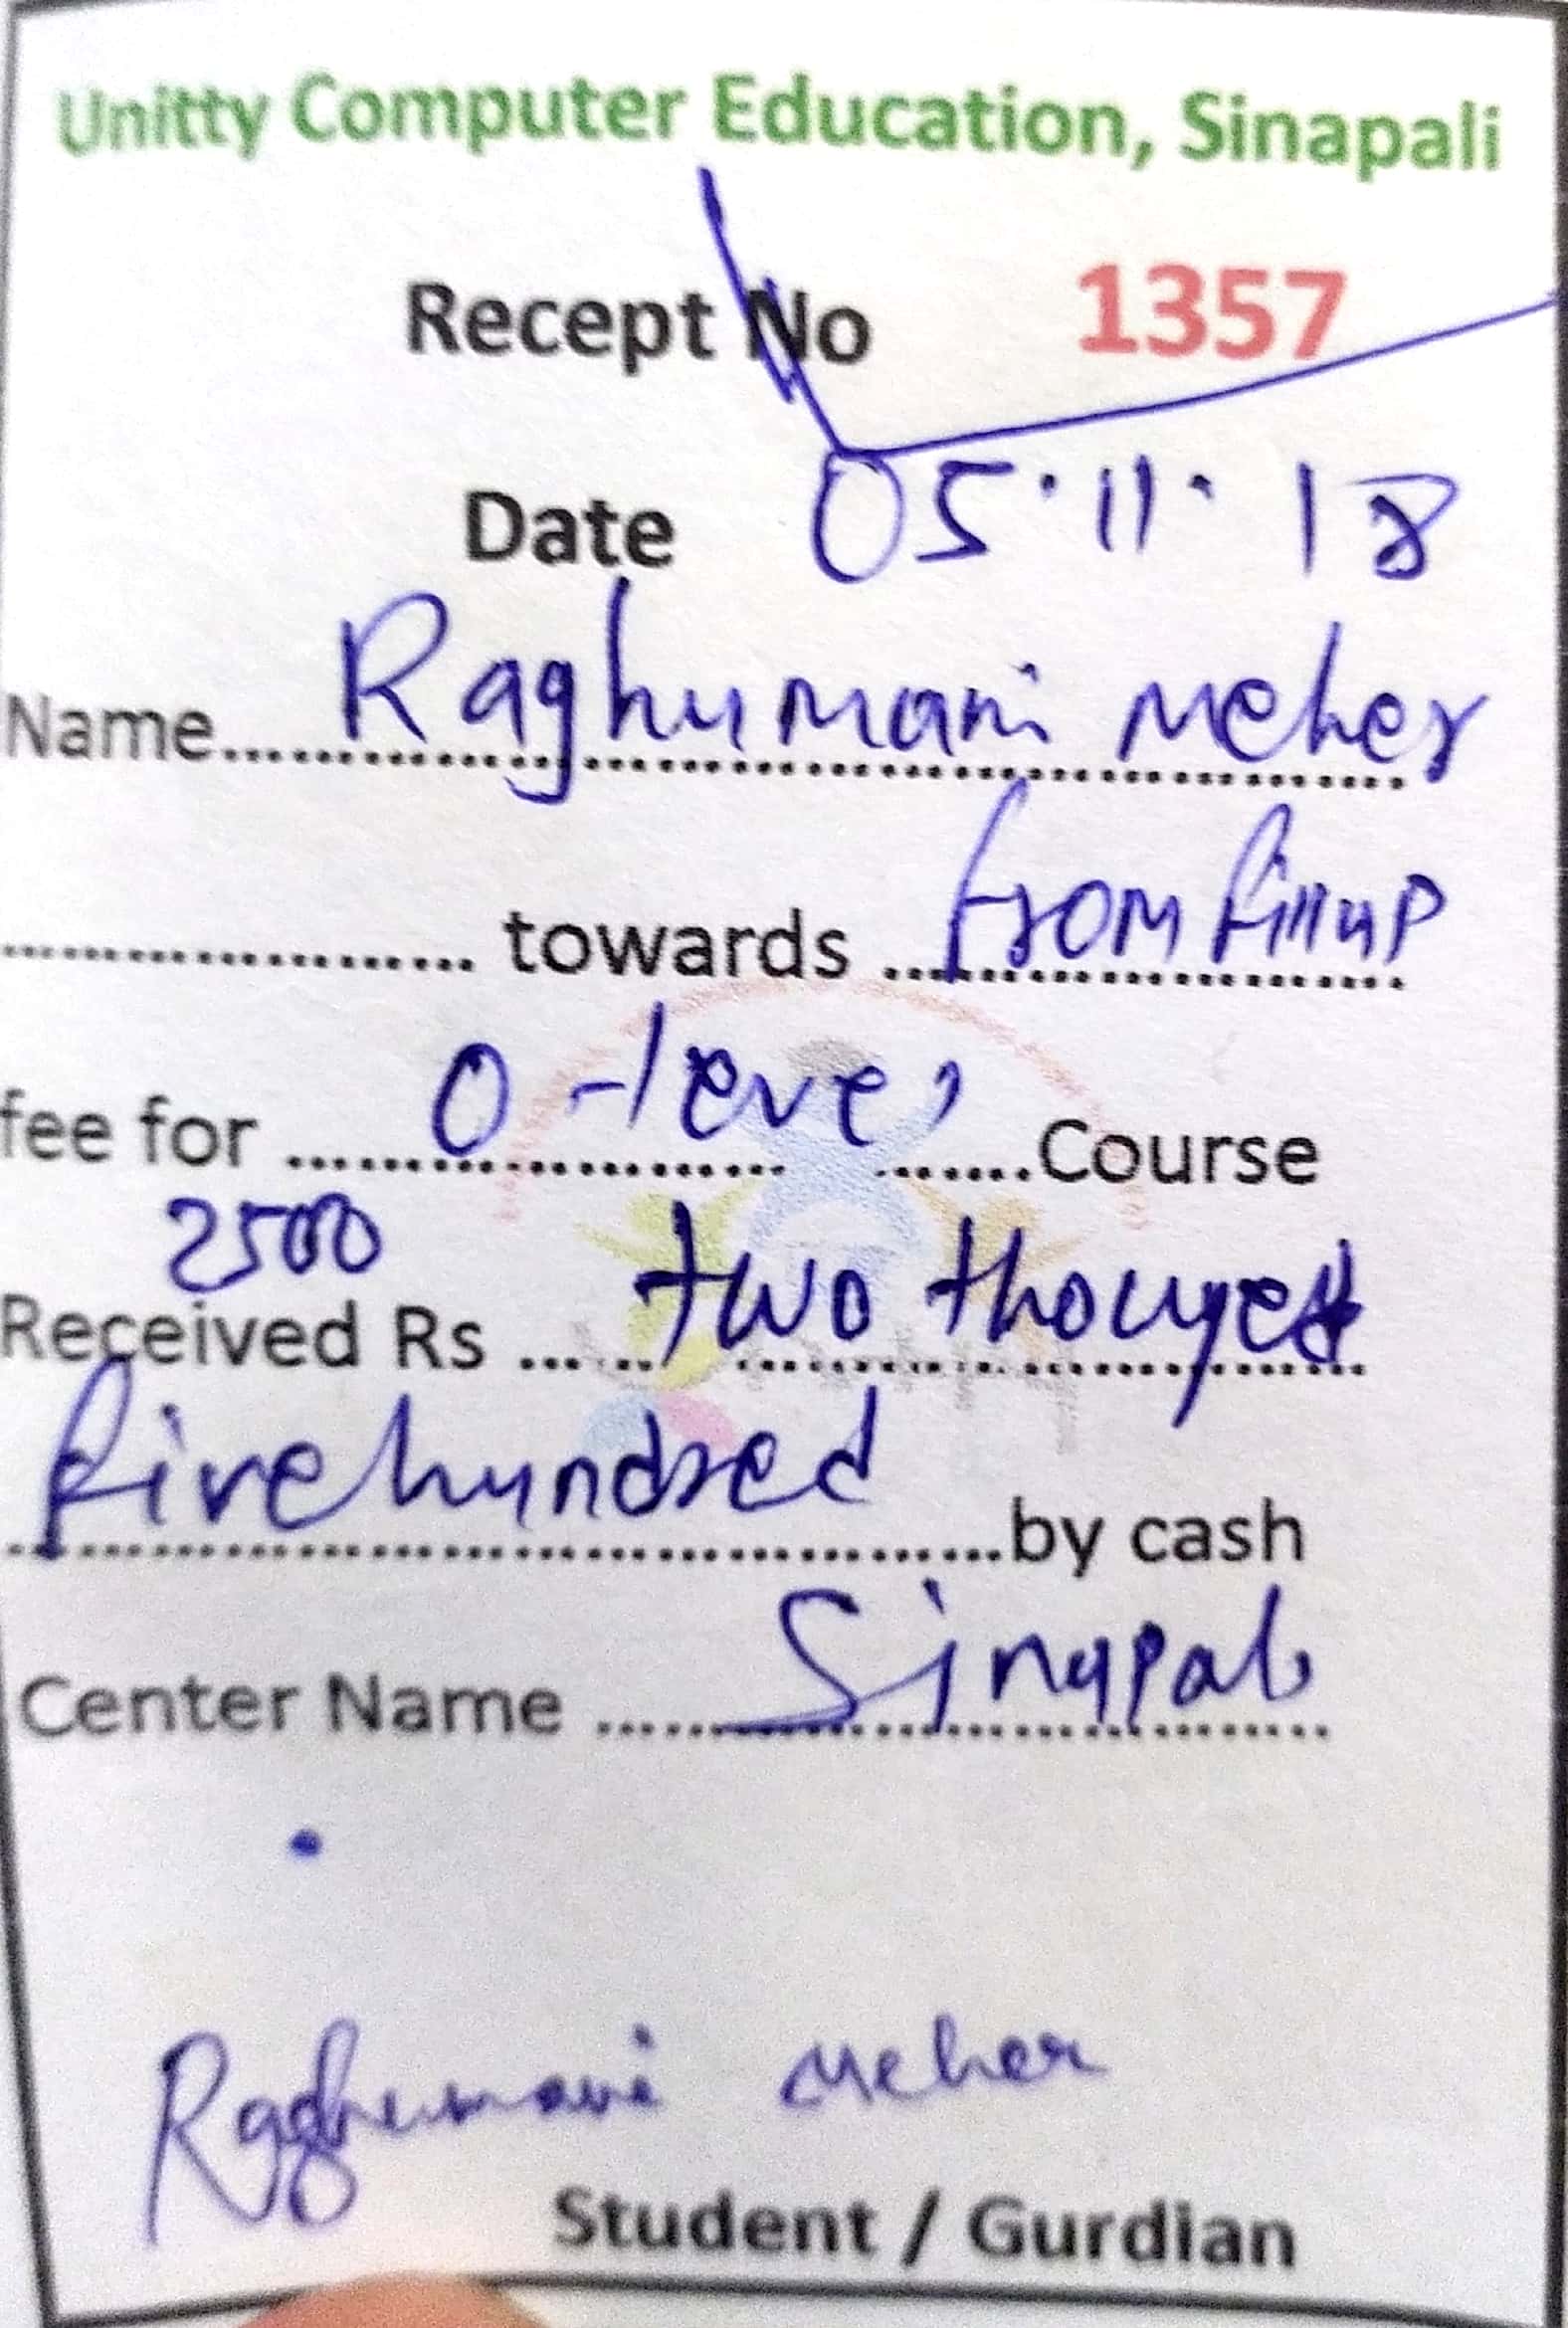 Unitty Computer Education, Sinapali
Recept No 1357
Date 05.11.18
Name.......Raghumani Meher
.......... towards ....from fillup
fee for ....O-level........Course
2500
Received Rs ......two
fivehundred ......by cash
Center Name ......Sinapali
Raghumani Meher
Student / Gurdian